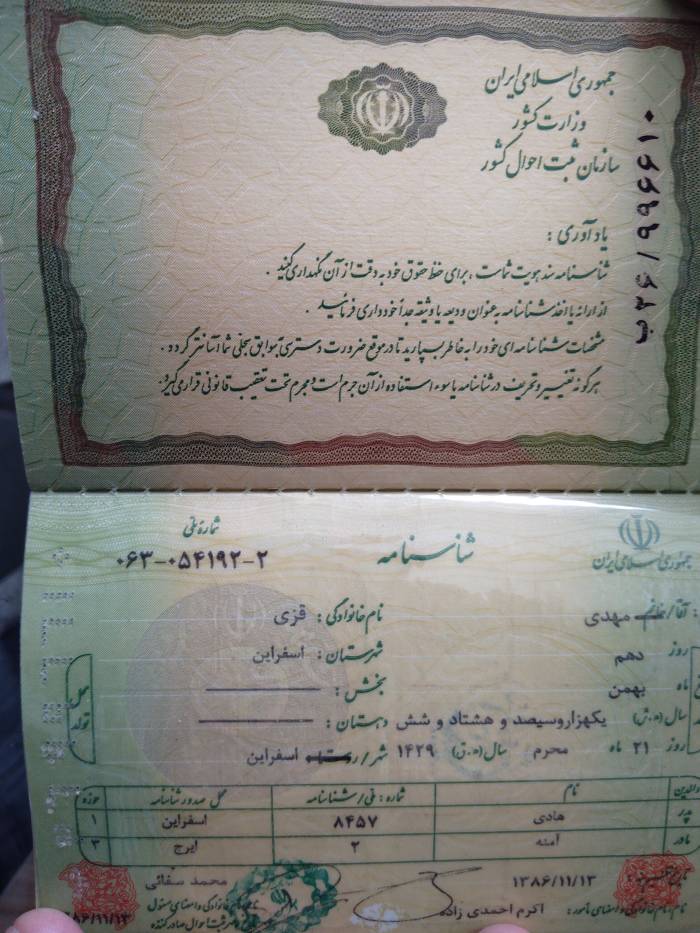 جمهوری اسلامی ایران
وزارت کشور
سازمان ثبت احوال کشور
ب۲۶/۰۱۶۶۹۹
یادآوری :
شناسنامه سند هویت شماست ، برای حفظ حقوق خود به دقت از آن نگهداری کنید .
از ارائه یا اخذ شناسنامه به عنوان ودیعه یا وثیقه جداً خودداری فرمائید .
مشخصات شناسنامه ای خود را به خاطر بسپارید تا در موقع ضرورت دسترسی به سوابق سجلی شما آسانتر گردد .
هرگونه تغییر و تحریف در شناسنامه یا سوء استفاده از آن جرم است و مجرم تحت تعقیب قانونی قرار می گیرد.
جمهوری اسلامی ایران
شناسنامه
شماره ملی
۰۶۳-۰۵۴۱۹۲-۲
آقا/خانم : مهدی نام خانوادگی : قزی
روز دهم شهرستان : اسفراین
ماه بهمن بخش :
سال (ه.ش) یکهزار و سیصد و هشتاد و شش دهستان :
روز ۲۱ ماه محرم سال (ه.ق) ۱۴۲۹ شهر/ اسفراین
محل تولد
والدین نام شماره : ملی/شناسنامه محل صدور شناسنامه حوزه
پدر هادی ۸۴۵۷ اسفراین ۱
مادر آمنه ۲ ایرج ۳
۱۳۸۶/۱۱/۱۳ محمد سفائی
نام ،نام خانوادگی و امضای مأمور : اکرم احمدی زاده نام،نام خانوادگی و امضای مسئول
۸۶/۱۱/۱۳